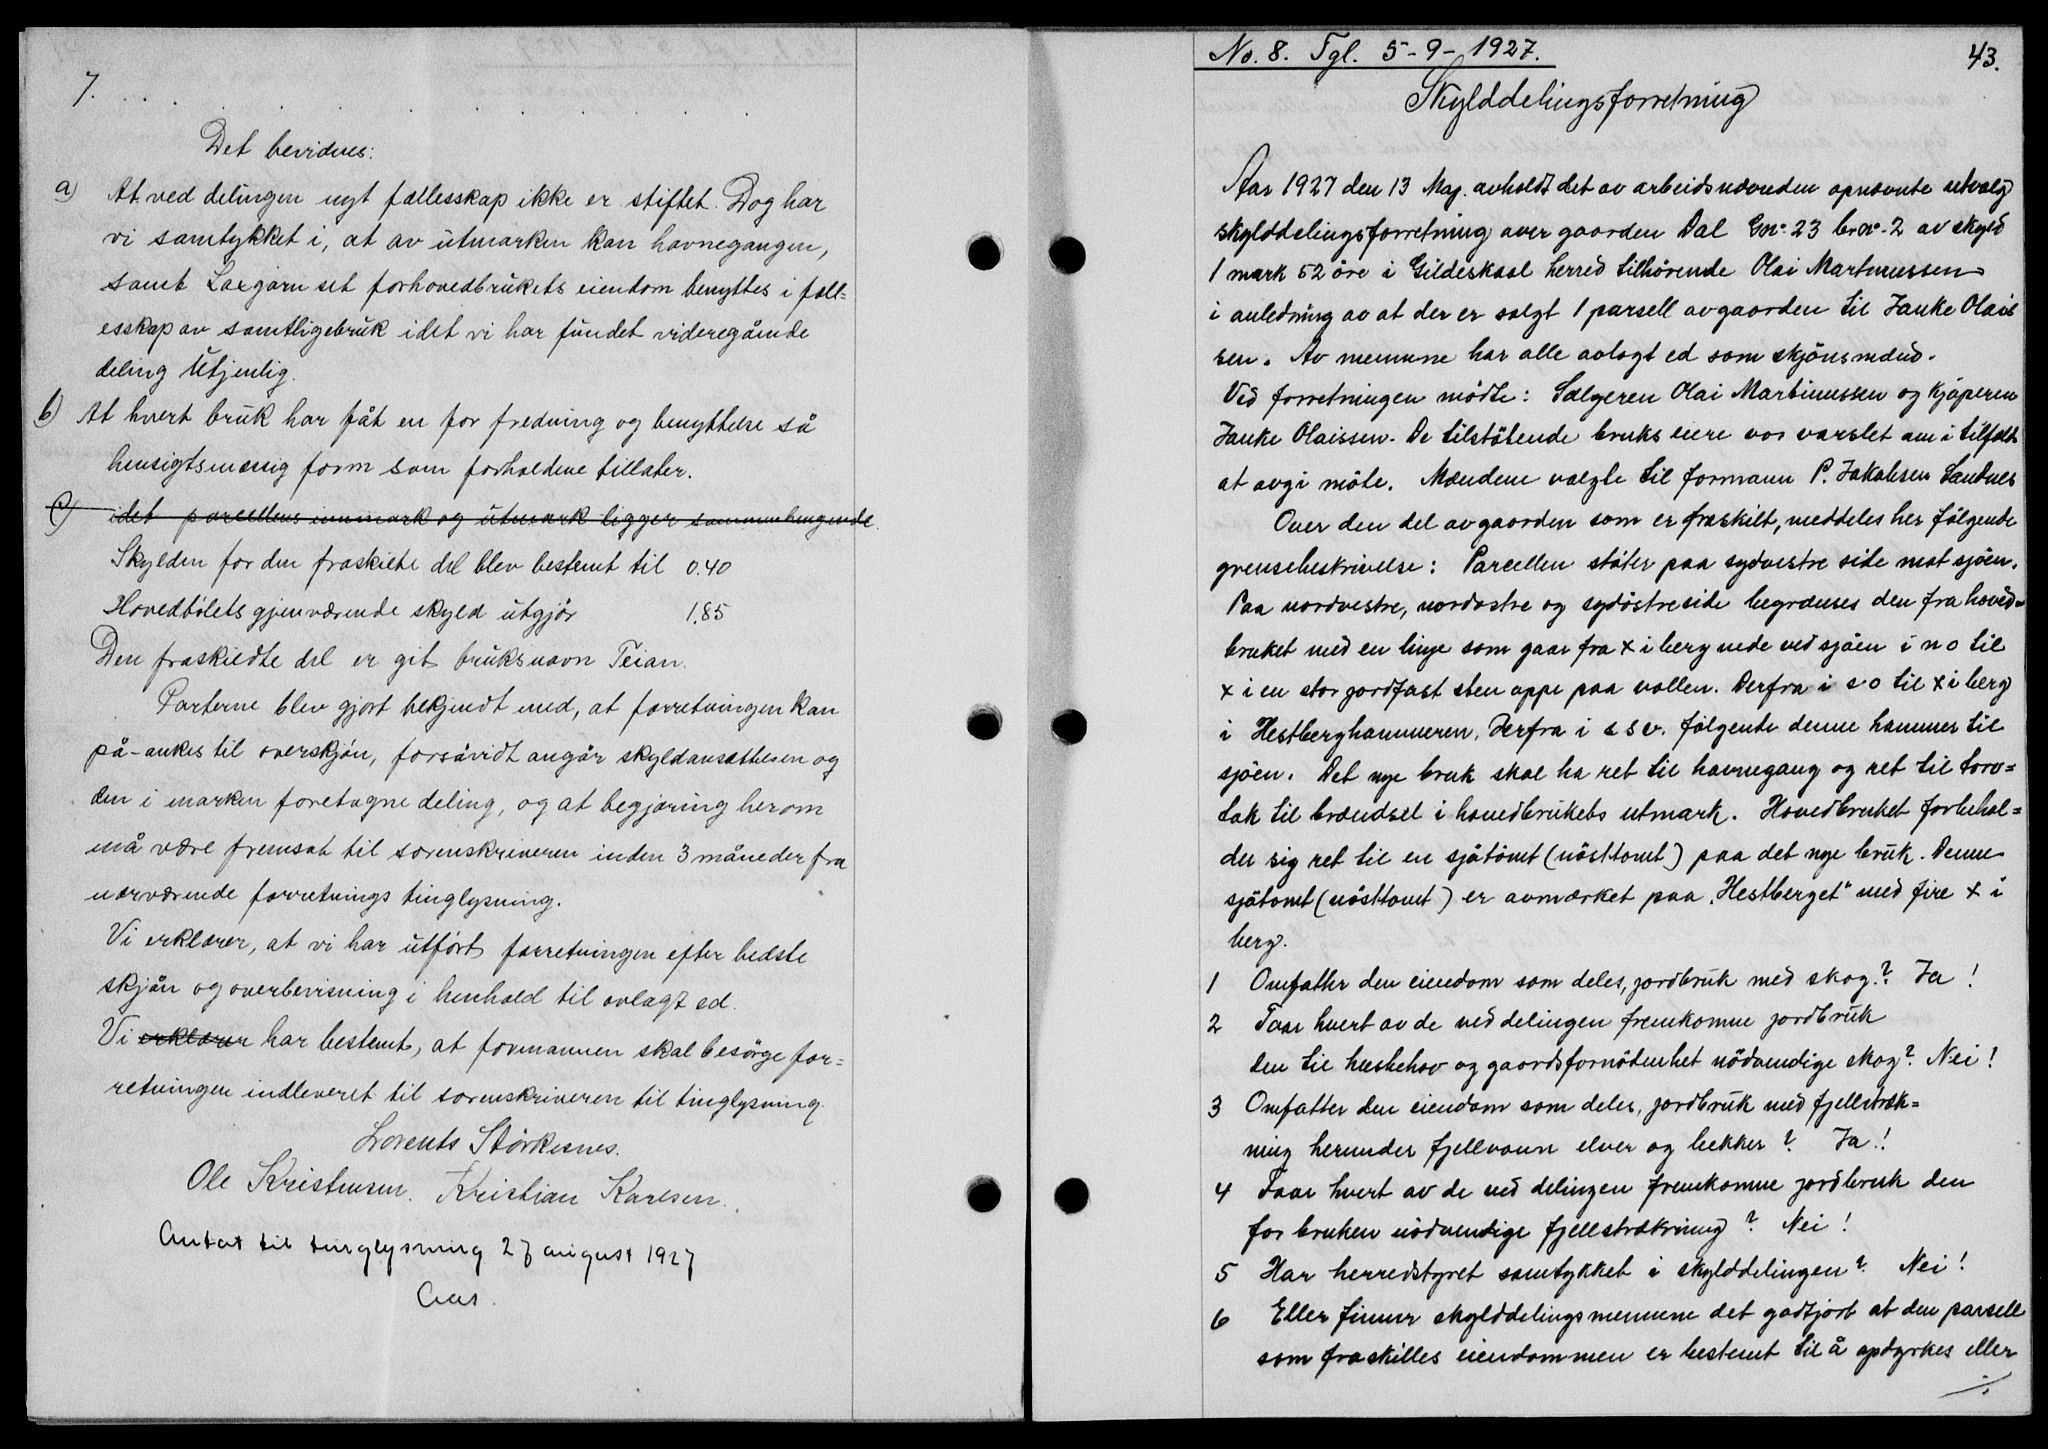 7. . . . . . . . .
Det bevidnes:
a) At ved delingen nyt fællesskap ikke er stiftet. Dog har
vi samtykket i, at av utmarken kan havnegangen,
samt Laxgarn set forhovedbrukets eiendom benyttes i fæll=
esskap av samtligebruk idet vi har fundet videregående
deling Utjenlig.
b) At hvert bruk har fåt en for fredning og benyttelse så
hensigtsmessig form som forholdene tillater.
c) idet parcellens innmark og utmark ligger sammenhengende.
Skylden for den fraskilte del blev bestemt til 0.40
Hovedbølets gjenværende skyld utgjør 1.85
Den fraskiedte del er git bruksnavn Teian.
Parterne blev gjort bekjendt med, at forretningen kan
på-ankes til overskjøn, forsåvidt angår skyldansættelsen og
den i marken foretagne deling, og at begjæring herom
må være fremsat til sorenskriveren inden 3 måneder fra
nærværende forretnings tinglysning.
Vi erklærer, at vi har utført forretningen efter bedste
skjøn og overbevisning i henhold til avlagt ed.
Vi erklærer har bestemt, at formannen skal besørge for=
retningen indleveret til sorenskriveren til tinglysning.
Lorents Störkesnes.
Ole Kristensen. Kristian Karlsen.
Antat til tinglysning 27 august 1927
Aas.
No. 8. Tgl. 5-9-1927.
43.
Skylddelingsforretning
Aar 1927 den 13 Maj. avholdt det av arbeidsnævnden opnævnte utvalg
skylddelingsforretning over gaarden Dal Gnr. 23 brnr. 2 av skyld
1 mark 52 öre i Gildeskaal herred tilhörende Olai Martinussen
i anledning av at der er solgt 1 parsell av gaarden til Janke Olais
sen. Av mennene har alle avlagt ed som skjönsmænd.
Ved forretningen mödte: Sælgeren Olai Martinussen og kjöperen
Janke Olaissen. De tilstötende bruks eiere var varslet om i tilfelle
at avgi möte. Mændene valgte til formann P. Jakobsen Sandnes
Over den del av gaarden som er fraskilt, meddeles her fölgende
grensebeskrivelse: Parcellen stöter paa sydvestre side mot sjöen.
Paa nordvestre, nordostre og sydöstre side begrænses den fra hoved=
bruket med en linje som gaar fra x i berg nede ved sjöen i n o til
x i en stor jordfast sten oppe paa vollen. Derfra i s o til x i berg
i Hestberghammeren. Derfra i s s v. fölgende denne hammer til
sjöen. Det nye bruk skal ha ret til havnegang og ret til torv=
tak til brændsel i hovedbrukets utmark. Hovedbruket forbehol=
der sig ret til en sjötomt (nösttomt) paa det nye bruk. Denne
sjötomt (nösttomt) er avmærket paa „Hestberget" med fire x i
berg.
1 Omfatter den eiendom som deles, jordbruk med skog? Ja!
2 Faar hvert av de ved delingen fremkomne jordbruk
den til husbehov og gaardsfornödenhet nödvendige skog? Nei!
3 Omfatter den eiendom som deles, jordbruk med fjellstræk=
ning herunder fjellvann elver og bekker? Ja!
4 Faar hvert av de ved delingen fremkomne jordbruk den
for bruken nödvendige fjellstrækning? Nei!
5 Har herredstyret samtykket i skylddelingen? Nei!
6 Eller finner skylddelingsmennene det godtjort at den parsell
som fraskilles eiendommen er bestemt til å opdyrkes eller
./.